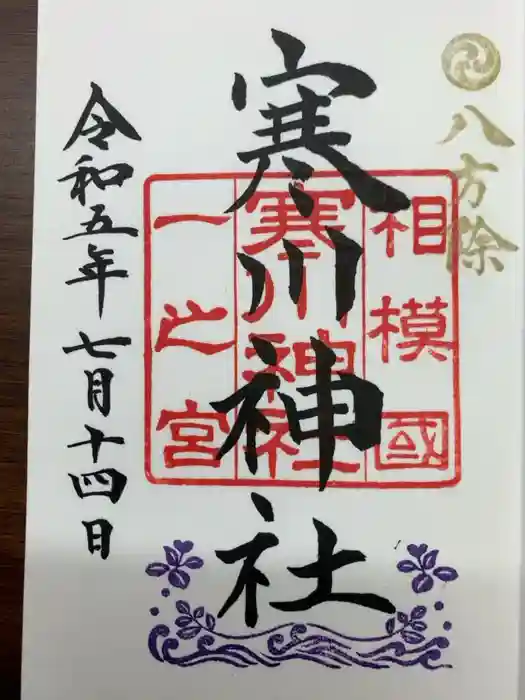 八方除
相模國
寒川神社
一之宮
寒川神社
令和五年七月十四日